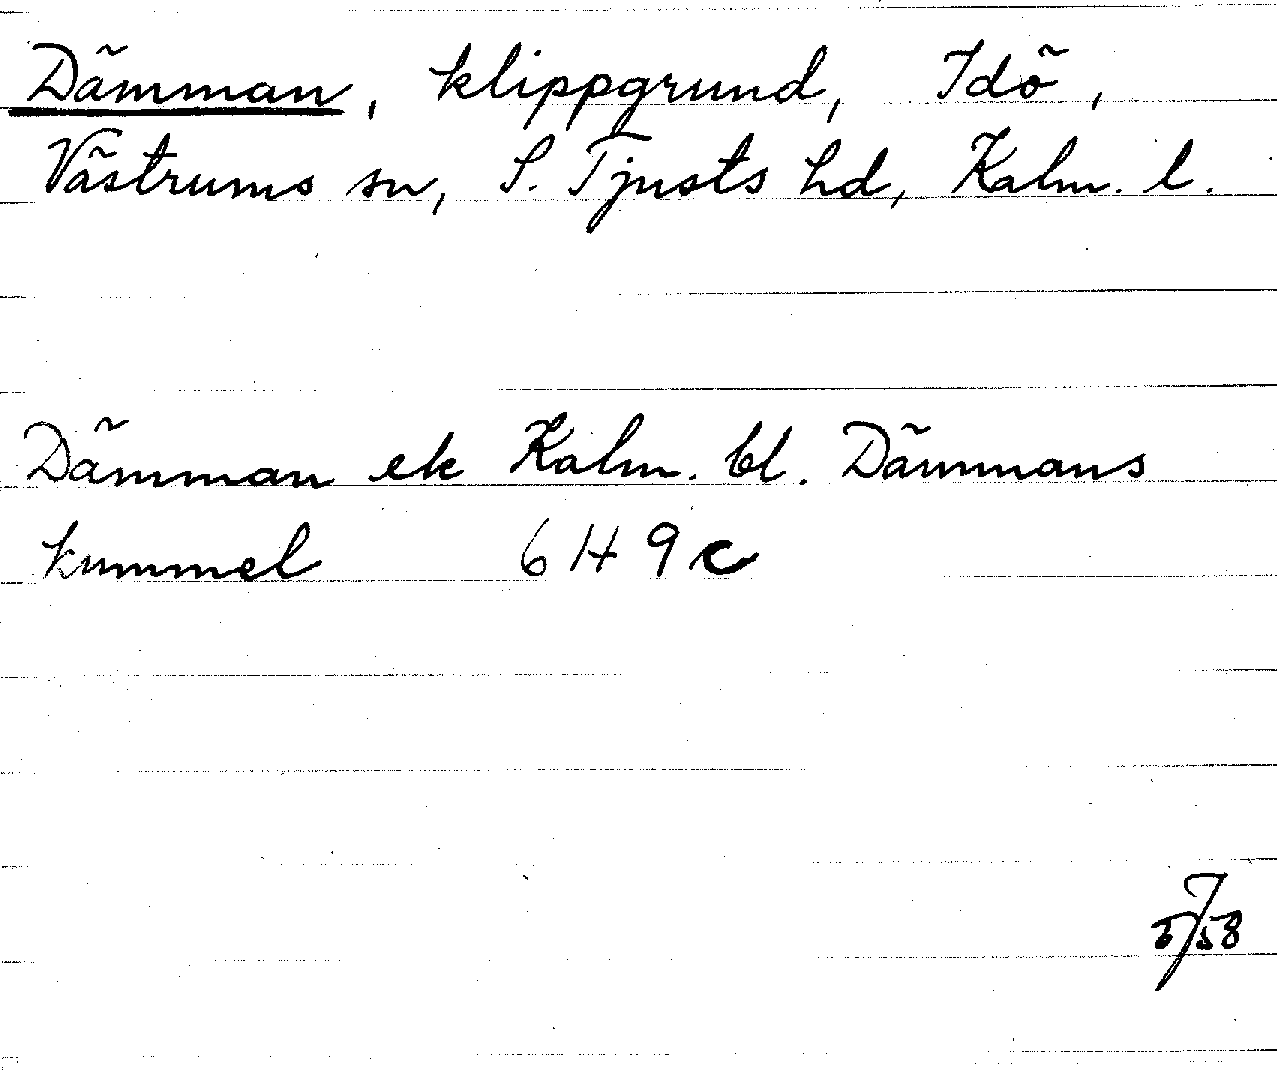 Dämman, klippgrund, Idö,
Västrums sn, S. Tjusts hd, Kalm. l.
Dämman ek Kalm. bl. Dämmans
kummel 6 H 9 c